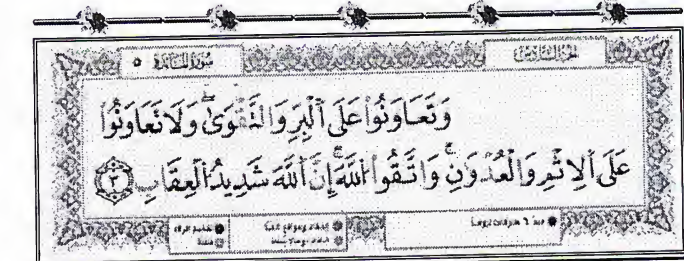 سُورَةُ المَائدة ٥
الجزء السادس
وَتَعَاوَنُوا۟ عَلَى ٱلْبِرِّ وَٱلتَّقْوَىٰ ۖ وَلَا تَعَاوَنُوا۟
عَلَى ٱلْإِثْمِ وَٱلْعُدْوَٰنِ ۚ وَٱتَّقُوا۟ ٱللَّهَ ۖ إِنَّ ٱللَّهَ شَدِيدُ ٱلْعِقَابِ ٣